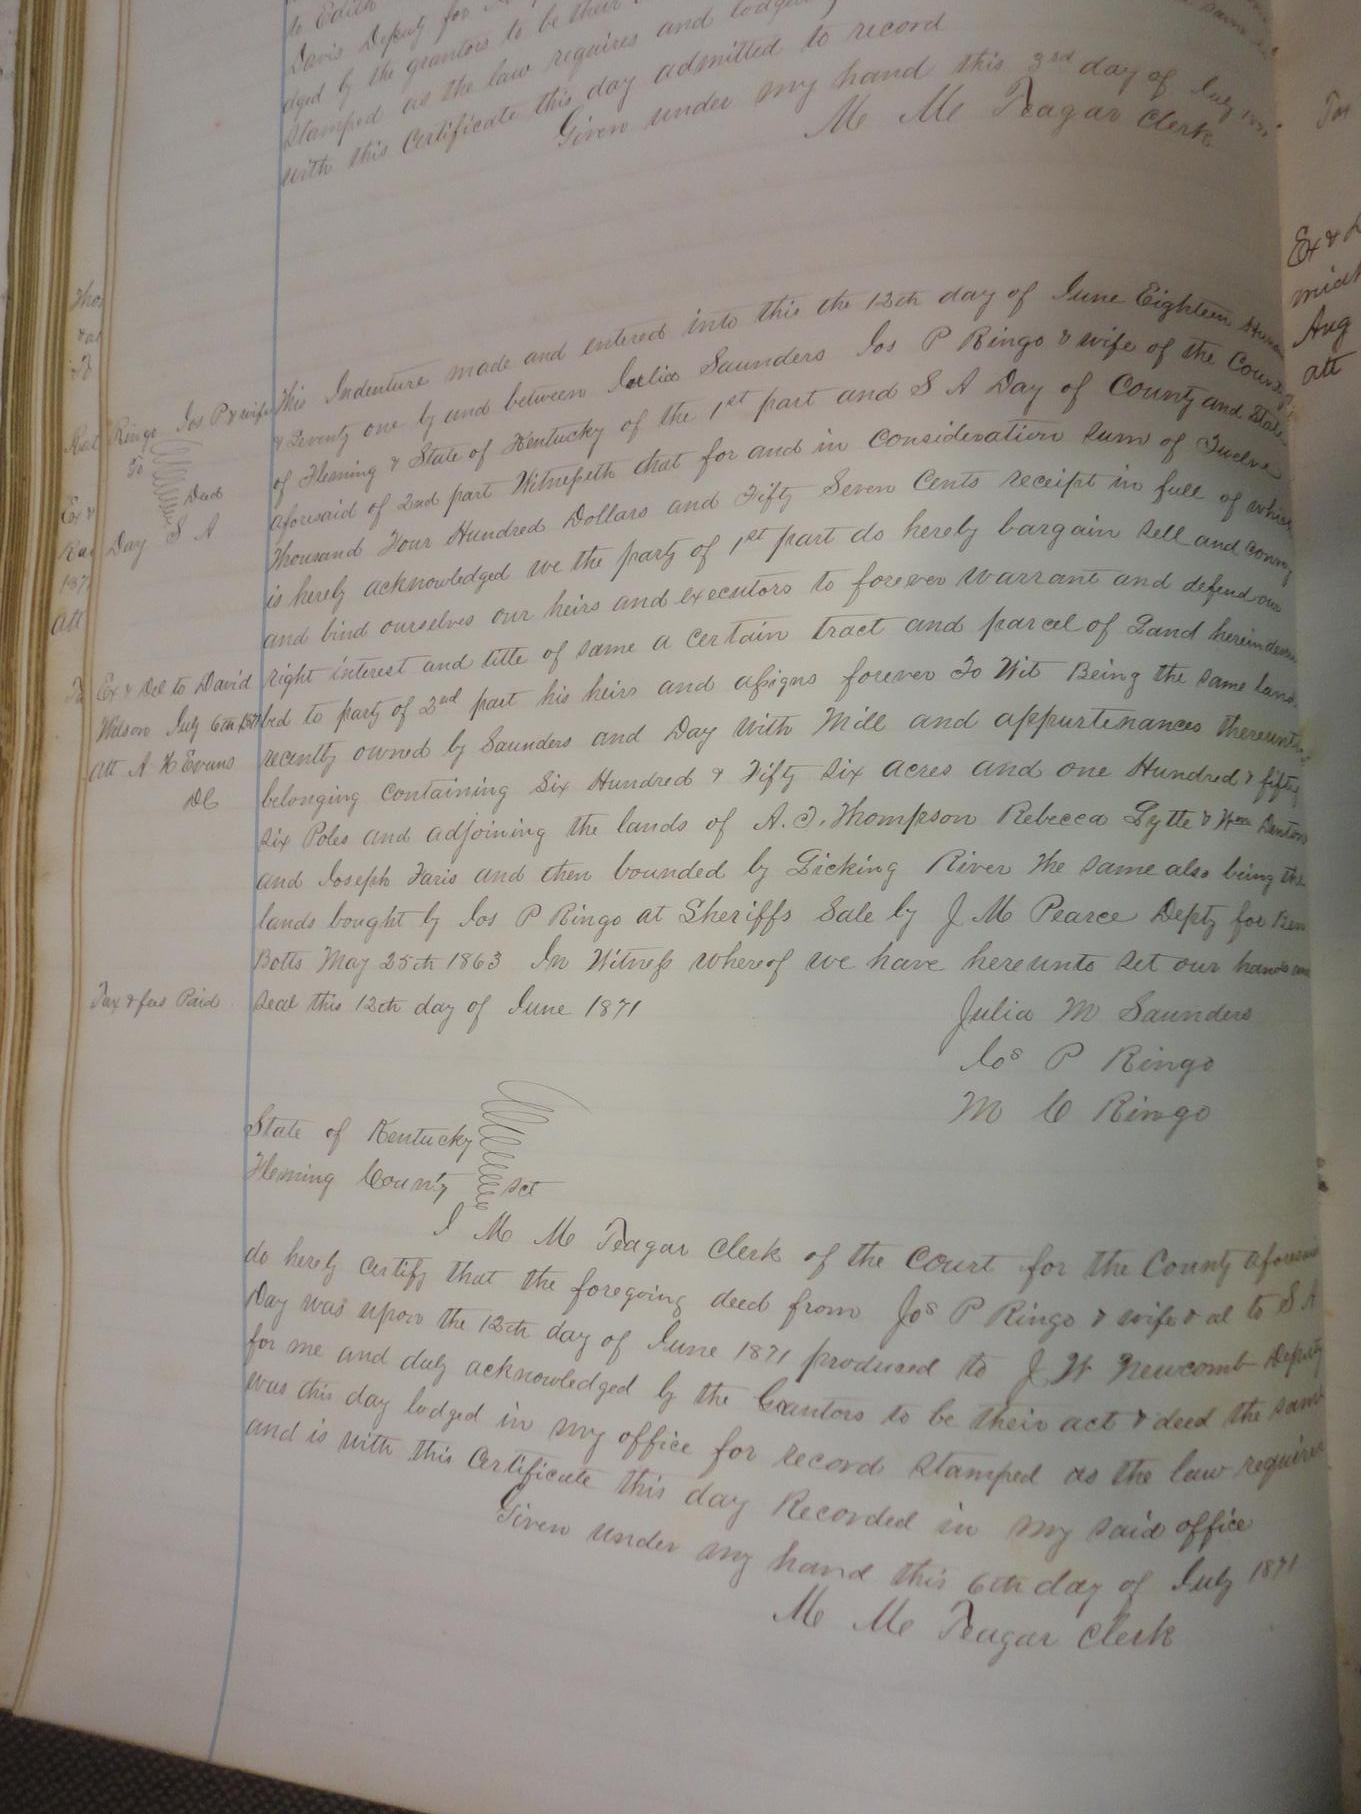 to Edith
Davis Deputy for
dged by the grantors to be their
stamped as the law requires and lodged
with this Certificate this day admitted to record
Given under my hand this 3rd day of July
M M Teagar Clerk
This Indenture made and entered into this the 12th day of June Eighteen
& Seventy one by and between Julia Saunders Jos P Ringo & wife of the County
of Fleming & State of Kentucky of the 1st part and S A Day of County and State
aforesaid of 2nd part Witnesseth that for and in consideration sum of Twelve
Thousand Four Hundred Dollars and Fifty Seven Cents receipt in full of which
is herely acknowledged we the party of 1st part do herely bargain sell and convey
and bind ourselves our heirs and executors to forever warrant and defend our
right interest and title of same a certain tract and parcel of Land herein
bed to party of 2nd part his heirs and assigns forever To Wit Being the same land
recently owned by Saunders and Day with Mill and appurtenances thereunto
belonging containing Six Hundred & Fifty Six acres and one Hundred & fifty
six Poles and adjoining the lands of A. T. Thompson Rebecca Lytte & Wm
and Joseph Faris and then bounded by Licking River The same also being the
lands bought by Jos P Ringo at Sheriffs Sale by J M Pearce Depty for Ben
Botts May 25th 1863 In Witness whereof we have hereunto set our hands
seal this 12th day of June 1871
Julia M Saunders
Jos P Ringo
M C Ringo
Ringo Jos P & wife
To
Deed
Day S A
Ex & Del to David
Wilson July 6th 1871
att A H Evans
DC
Tax & fees Paid
State of Kentucky
Fleming County Sct
I M M Teagar Clerk of the Court for the County aforesaid
do herely certify that the foregoing deed from Jos P Ringo & wife & al to S A
Day was upon the 12th day of June 1871 produced to J W Newcomb Deputy
for me and duly acknowledged by the Grantors to be their act & deed the same
was this day lodged in my office for record stamped as the law requires
and is with this Certificate this day Recorded in my said office
Given under my hand this 6th day of July 1871
M M Teagar Clerk
Aug
att